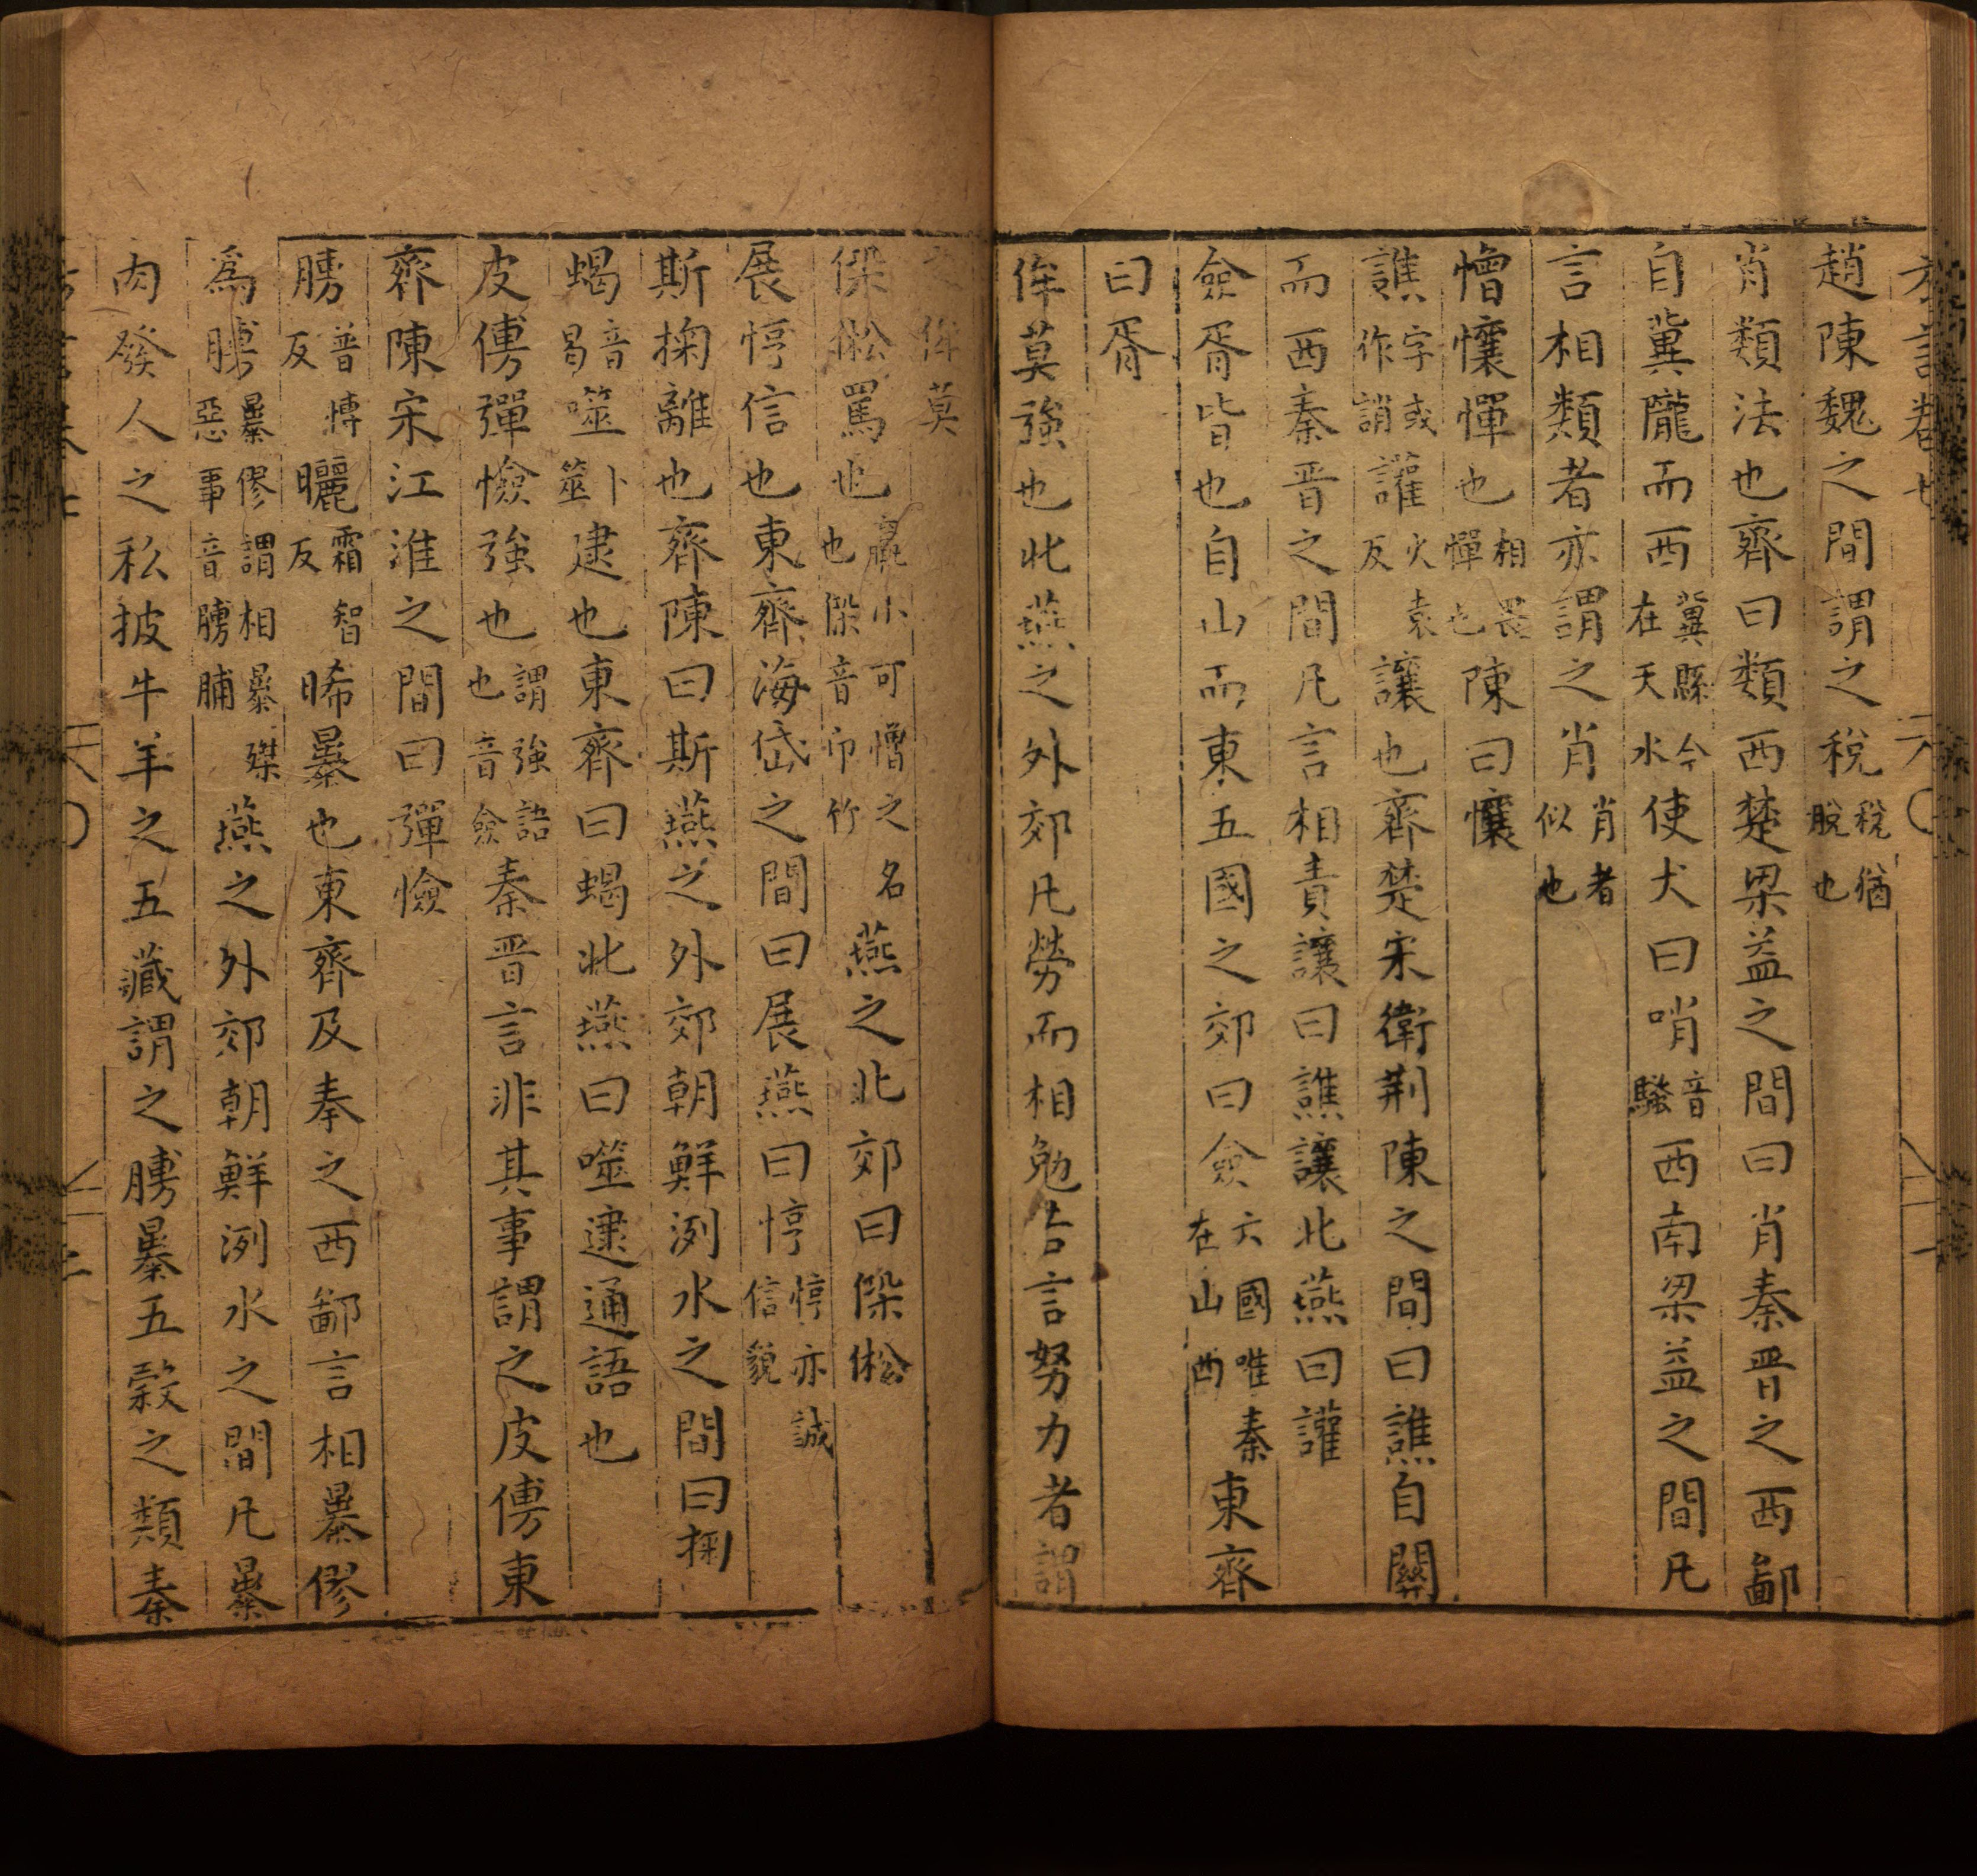 趙陳魏之間謂之稅稅猶脫也
肖類法也齊曰類西楚梁益之間曰肖秦晋之西鄙
自冀隴而西冀縣今在天水使犬曰哨音騷西南梁益之間凡
言相類者亦謂之肖肖者似也
憎懹憚也相畏憚也陳曰懹
譙字或作誚讙火袁反讓也齊楚宋衛荆陳之間曰譙自關
而西秦晋之間凡言相責讓曰譙讓北燕曰讙
僉胥皆也自山而東五國之郊曰僉六國唯秦在山西東齊
曰胥
侔莫強也北燕之外郊凡勞而相勉若言努力者謂
之侔莫
傑倯罵也羸小可憎之名也傑音卬竹燕之北郊曰傑倯
展惇信也東齊海岱之間曰展燕曰惇惇亦誠信貌
斯掬離也齊陳曰斯燕之外郊朝鮮洌水之間曰掬
蝎音曷噬卜筮逮也東齊曰蝎北燕曰噬逮通語也
皮傅彈憸強也謂強語也音僉秦晋言非其事謂之皮傅東
齊陳宋江淮之間曰彈憸
膊普博反曬霜智反晞暴也東齊及秦之西鄙言相暴僇
為膊暴僇謂相暴磔惡事音膊脯燕之外郊朝鮮洌水之間凡暴
肉發人之私披牛羊之五藏謂之膊暴五穀之類秦